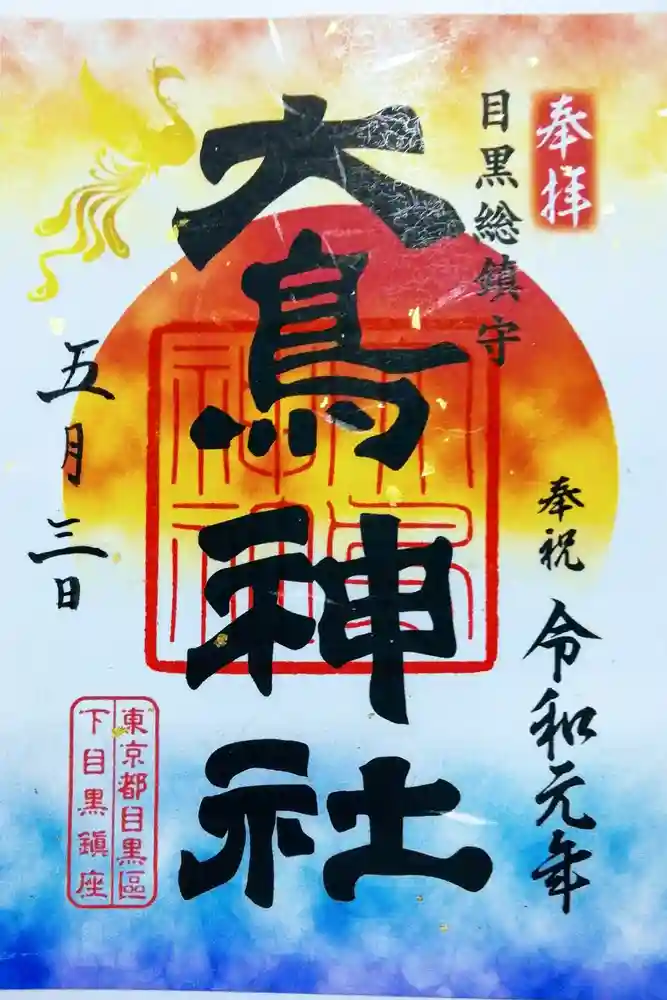 奉拝
目黒総鎮守
奉祝 令和元年
大鳥神社
五月三日
東京都目黒區
下目黒鎮座